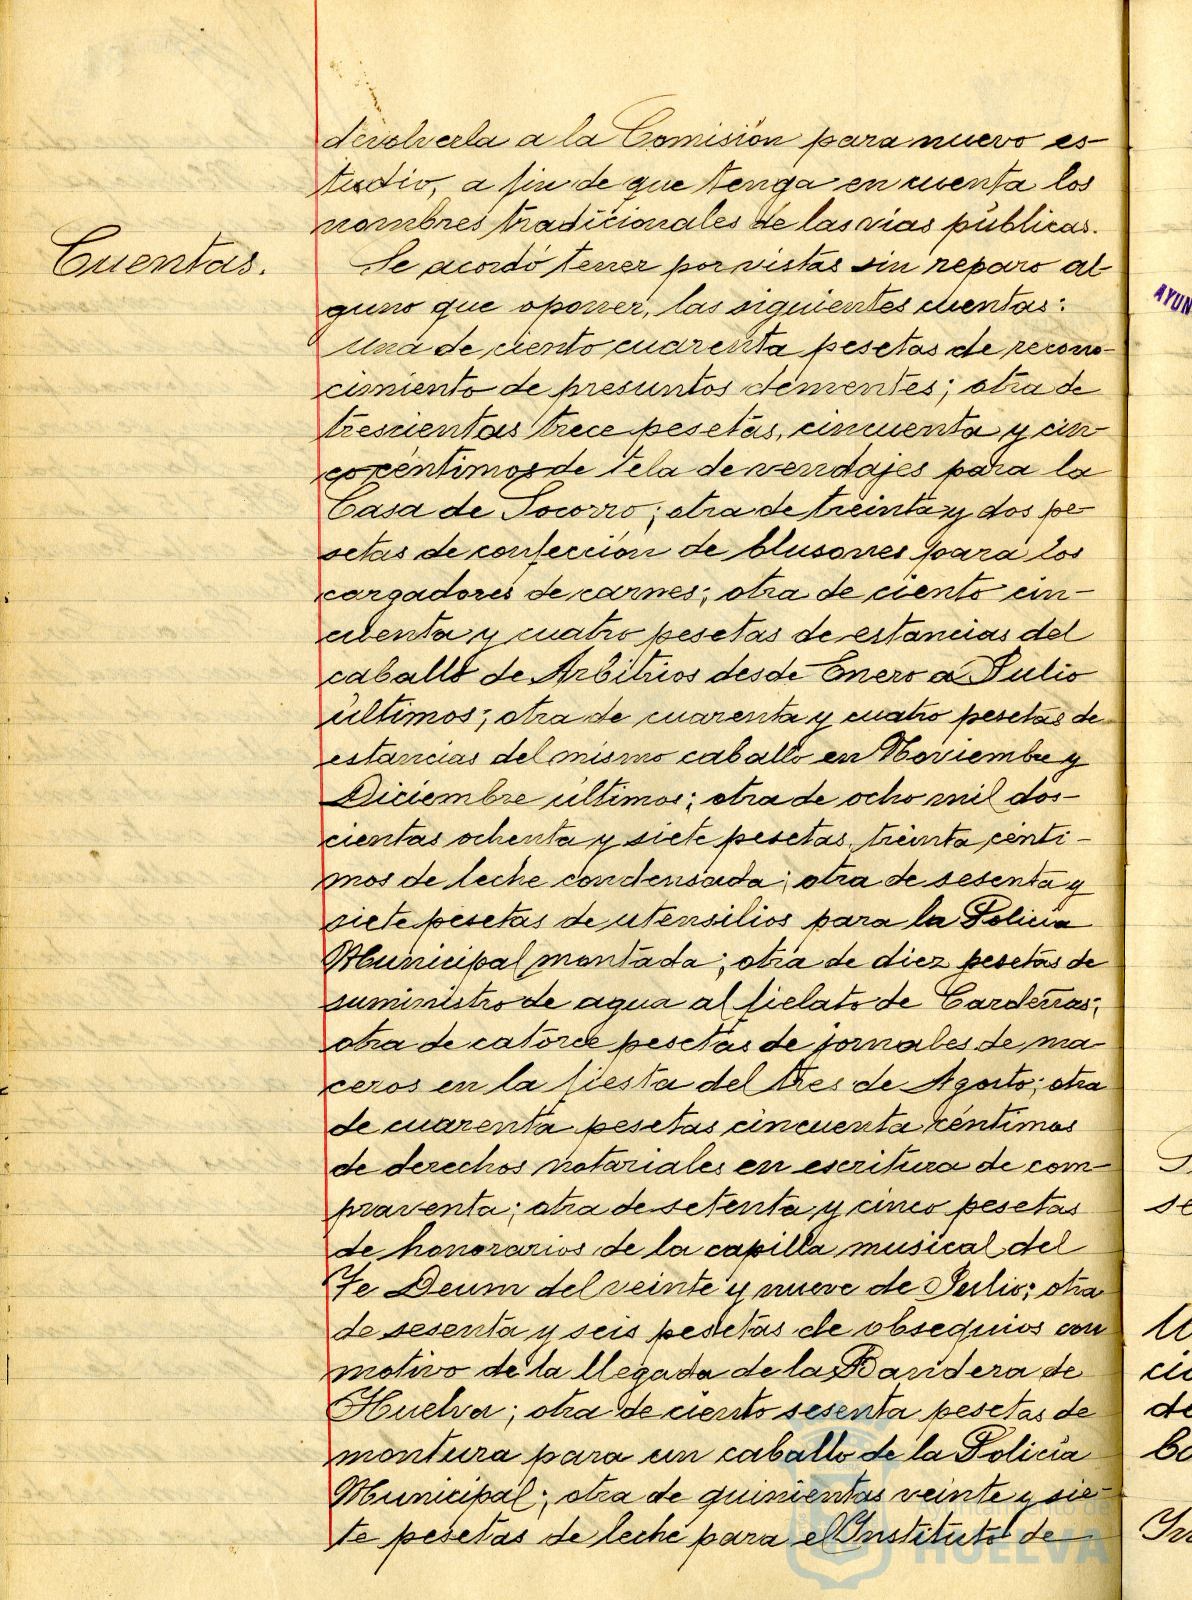 devolverla a la Comisión para nuevo es-
tudio, a fin de que tenga en cuenta los
nombres tradicionales de las vias públicas.
Cuentas.
Se acordó tener por vistas sin reparo al-
guno que oponer, las siguientes cuentas:
Una de ciento cuarenta pesetas de recono-
cimiento de presuntos dementes; otra de
trescientas trece pesetas, cincuenta y cin-
co céntimos de tela de vendajes para la
Casa de Socorro; otra de treinta y dos pe-
setas de confección de blusones para los
cargadores de carnes; otra de ciento cin-
cuenta y cuatro pesetas de estancias del
caballo de Arbitrios desde Enero a Julio
últimos; otra de cuarenta y cuatro pesetas de
estancias del mismo caballo en Noviembre y
Diciembre últimos; otra de ocho mil dos-
cientas ochenta y siete pesetas, treinta cénti-
mos de leche condensada; otra de sesenta y
siete pesetas de utensilios para la Policia
Municipal montada; otra de diez pesetas de
suministro de agua al fielato de Cardeñas;
otra de catorce pesetas de jornales de ma-
ceros en la fiesta del tres de Agosto; otra
de cuarenta pesetas cincuenta céntimos
de derechos notariales en escritura de com-
praventa; otra de setenta y cinco pesetas
de honorarios de la capilla musical del
Te Deum del veinte y nueve de Julio; otra
de sesenta y seis pesetas de obsequios con
motivo de la llegada de la Bandera de
Huelva; otra de ciento sesenta pesetas de
montura para un caballo de la Policía
Municipal; otra de quinientas veinte y sie-
te pesetas de leche para el Instituto de
AYUN
se
de
Ayuntamiento de
HUELVA